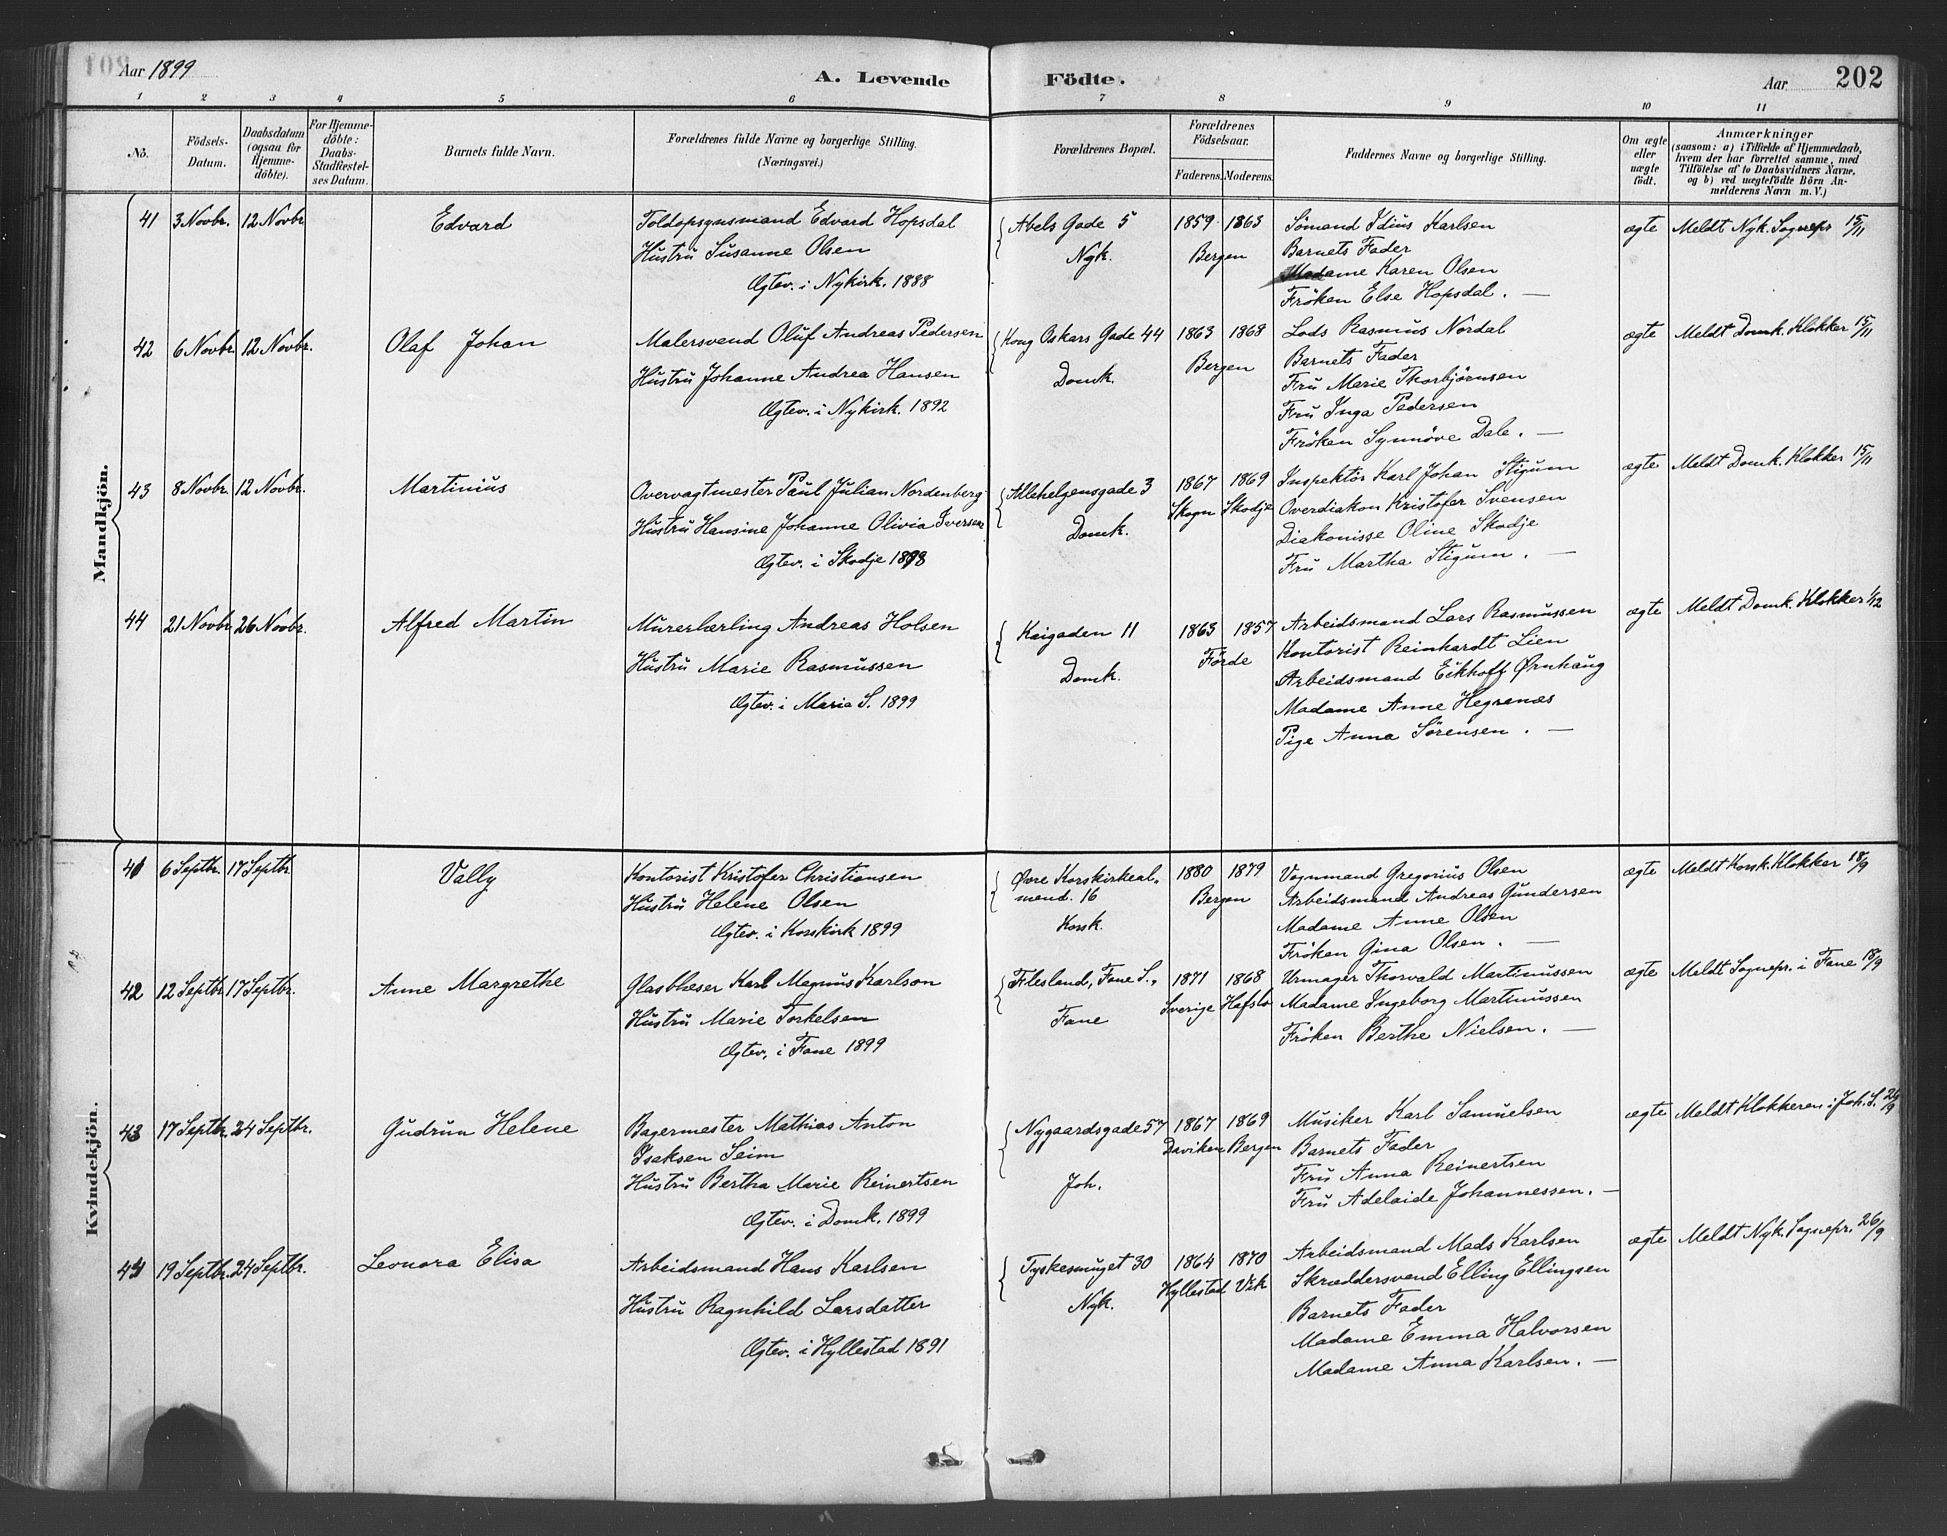 Aar 1899
A. Levende Födte.
Aar
202
1 2 3 4 5 6 7 8 9 10 11
No.
Födsels-
Datum.
Daabsdatum
(ogsaa for
Hjemme-
döbte).
For Hjemme-
döbte:
Daabs-
Stadfæstel-
ses Datum.
Barnets fulde Navn.
Forældrenes fulde Navne og borgerlige Stilling.
(Næringsvei.)
Forældrenes Bopæl.
Forældrenes
Födselsaar.
Faderens. Moderens.
Faddernes Navne og borgerlige Stilling.
Om ægte
eller
uægte
födt.
Anmærkninger
(saasom: a) i Tilfælde af Hjemmedaab,
hvem der har forrettet samme, med
Tilföielse af to Daabsvidners Navne,
og b) ved uægtefödte Börn An-
melderens Navn m. V.)
Mandkjön.
41 3 Novbr. 12 Novbr Edvard
Toldopsynsmand Edvard Hopsdal
Hustru Susanne Olsen
Ogtev. i Nykirk. 1888
Abels Gade 5
Nyk.
1859 1863
Bergen
Sömand Idius Karlsen
Barnets Fader
Madame Karen Olsen
Fröken Else Hopsdal. —
ægte Meldt Nyk. Sognepr 15/11
42 6 Novbr 12 Novbr. Olaf Johan
Malersvend Oluf Andreas Pedersen
Hustru Johanne Andrea Hansen
Ogtev. i Nykirk. 1892
Kong Oskars Gade 44
Domk.
1863 1868
Bergen
Lods Rasmus Nordal
Barnets Fader
Fru Marie Thorbjörnsen
Fru Inga Pedersen
Fröken Synnöve Dale. —
ægte Meldt Domk. Klokker 15/11
43 8 Novbr. 12 Novbr. Martinius
Overvagtmester Paul Julian Nordenberg
Hustru Hansine Johanne Olivia Iversen
Ogtev. i Skodje 1898
Allehelgensgade 3
Domk.
1867 1869
Skogn Skodje
Inspektör Karl Johan Stigum
Overdiakon Kristofer Svensen
Diakonisse Oline Skodje
Fru Martha Stigum. —
ægte Meldt Domk. Klokker 15/11
44 21 Novbr. 26 Novbr. Alfred Martin
Murerlærling Andreas Holsen
Hustru Marie Rasmussen
Ogtev. i Maria S. 1899
Kaigaden 11
Domk.
1863 1857
Förde
Arbeidsmand Lars Rasmussen
Kontorist Reinhardt Lien
Arbeidsmand Eikhoff Ørnhaug
Madame Anne Hegrenæs
Pige Anna Sørensen. —
ægte Meldt Domk. Klokker 1/12
Kvindekjön.
41 6 Septbr. 17 Septbr. Vally
Kontorist Kristofer Christiansen
Hustru Helene Olsen
Ogtev. i Korskirk 1899
Øvre Korskirkeal-
mend. 16
Korsk.
1880 1879
Bergen
Vognmand Gregorius Olsen
Arbeidsmand Andreas Gundersen
Madame Anne Olsen
Fröken Gina Olsen. —
ægte Meldt Korsk. Klokker 18/9
42 12 Septbr. 17 Septbr. Anne Margrethe
Glasblæser Karl Magnus Karlson
Hustru Marie Torkelsen
Ogtev. i Fane 1899
Flesland, Fane S.,
Fane
1871 1868
Sverige Hafslo
Urmager Thorvald Martinussen
Madame Ingeborg Martinussen
Fröken Berthe Nielsen. —
ægte Meldt Sognepr. i Fane 18/9
43 17 Septbr. 24 Septbr. Gudrun Helene
Bagermester Mathias Anton
Isaksen Seim
Hustru Bertha Marie Reinertsen
Ogtev. i Domk. 1899
Nygaardsgade 57
Joh.
1867 1869
Daviken Bergen
Musiker Karl Samuelsen
Barnets Fader
Fru Anna Reinertsen
Fru Adelaide Johannessen. —
ægte Meldt Klokkeren i Joh. S. 26/9
44 19 Septbr. 24 Septbr. Leonora Elisa
Arbeidsmand Hans Karlsen
Hustru Ragnhild Larsdatter
Ogtev. i Hyllestad 1891
Tyskesmuget 30
Nyk.
1864 1870
Hyllestad Vik
Arbeidsmand Mads Karlsen
Skræddersvend Elling Ellingsen
Barnets Fader
Madame Emma Halvorsen
Madame Anna Karlsen. —
ægte Meldt Nyk. Sognepr. 26/9